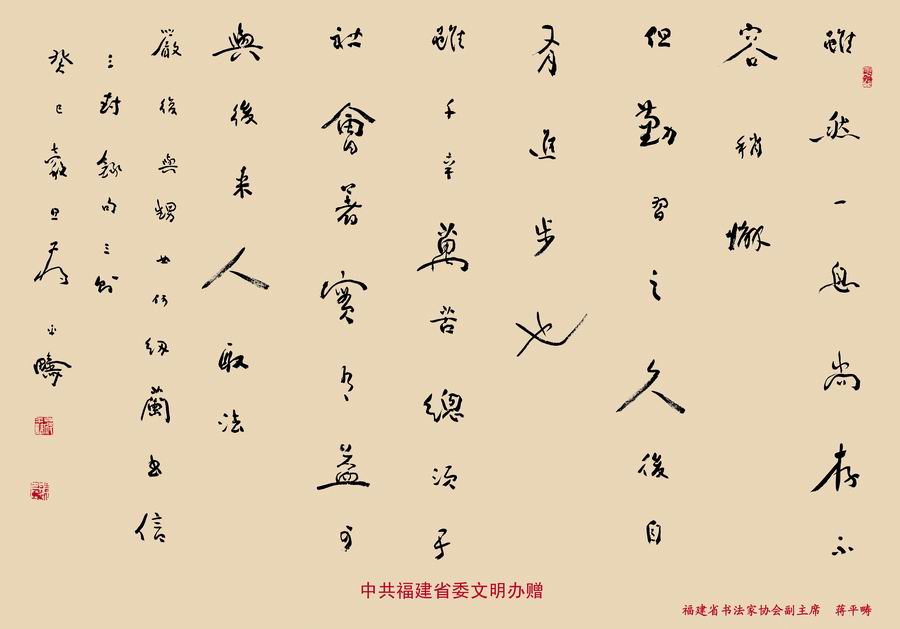 雖然一息尚存不
容稍懈
但勤習之久後自
有進步也
雖千辛萬苦總須于
社會著實有益可
與後來人取法
嚴復與甥女何紉蘭書信
三封錄句三則
癸巳穀旦蔣平疇
中共福建省委文明办赠
福建省书法家协会副主席 蒋平畴